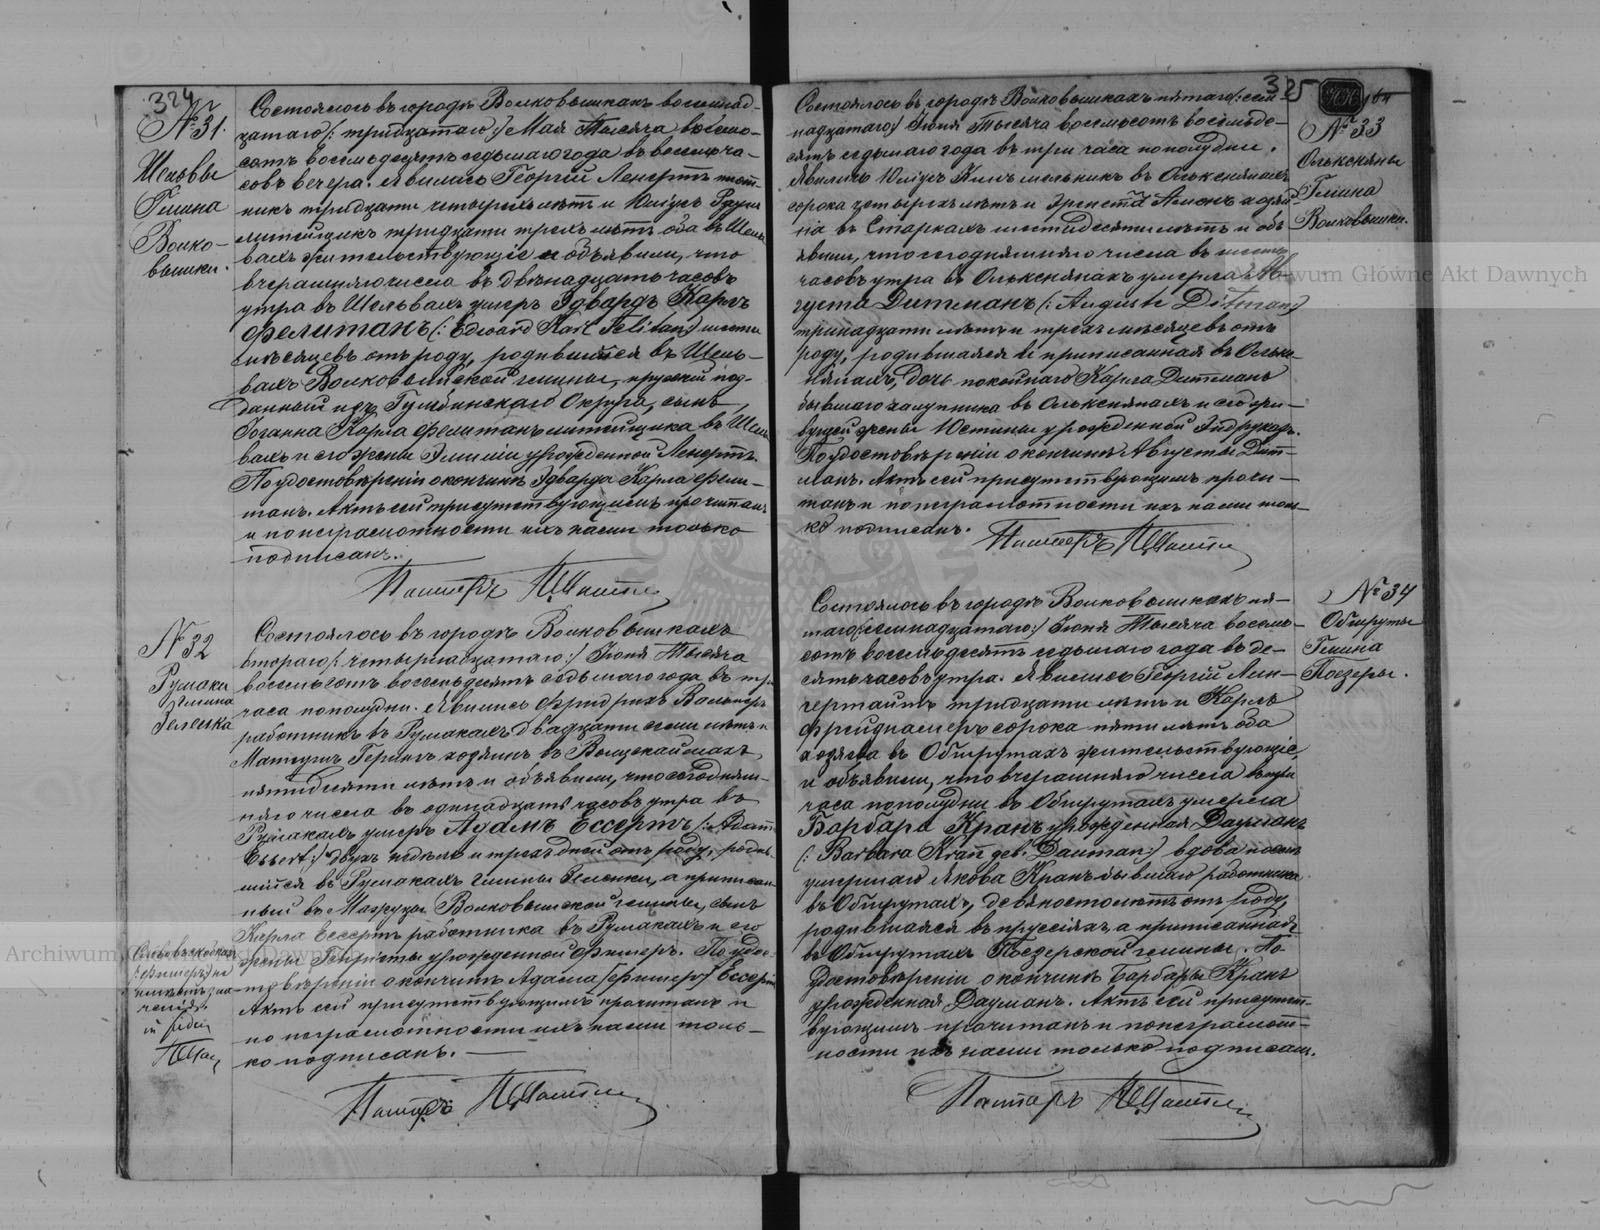 324
№ 31.
Шельвы
Гмина
Волко-
вышки.
Состоялось въ городѣ Волковышкахъ восемнад-
цатаго /: тридцатаго :/ Мая Тысяча восемь-
сотъ восемьдесятъ седьмаго года въ восемь ча-
совъ вечера. Явились Георгій Ленертъ плот-
никъ тридцати четырехъ лѣтъ и Юліусъ
литейщикъ тридцати трехъ лѣтъ оба въ Шель-
вахъ жительствующіе и объявили, что
вчерашняго числа въ двѣнадцать часовъ
утра въ Шельвахъ умеръ Эдвардъ Карлъ
Фелитанъ (: Edward Karl Felitan :) шести
мѣсяцевъ отъ роду, родившійся въ Шель-
вахъ Волковышской гмины, прускій под-
данный изъ Гумбинскаго Округа, сынъ
Іоганна Карла Фелитанъ литейщика въ Шель-
вахъ и его жены Эмиліи урожденной Ленертъ.
По удостовѣреніи о кончинѣ Эдварда Карла Фели-
танъ. Актъ сей присутствующимъ прочитанъ
и по неграмотности ихъ нами только
подписанъ.
Пасторъ
№ 32
Румаки
Гмина
Зеленка
Состоялось въ городѣ Волковышкахъ
втораго /: четырнадцатаго :/ Іюня Тысяча
восемьсотъ восемьдесятъ седьмаго года въ три
часа пополудни. Явились Фридрихъ
работникъ въ Румакахъ двадцати семи лѣтъ и
Матеушъ Герингъ хозяинъ въ
пятидесяти лѣтъ и объявили, что сегодняш-
няго числа въ одинадцать часовъ утра въ
Румакахъ умеръ Адамъ Ессертъ (: Adam
Essert :) двухъ недѣль и трехъ дней отъ роду, родив-
шійся въ Румакахъ гмины Зеленки, а приписан-
ный въ Мажуцы Волковышской гмины, сынъ
Карла Ессертъ работника въ Румакахъ и его
жены Генріэты урожденной Фишеръ. По удос-
товѣреніи о кончинѣ Адама /Фишеръ/ Ессертъ
Актъ сей присутствующимъ прочитанъ и
по неграмотности ихъ нами толь-
ко подписанъ.
Слово въ скобкахъ
/Фишеръ/ не
Пасторъ
325
№ 33
Ольксняны
Гмина
Волковышки.
Состоялось въ городѣ Волковышкахъ пятаго /: сем-
надцатаго :/ Іюня Тысяча восемьсотъ восемьде-
сятъ седьмаго года въ три часа пополудни.
Явились Юліусъ мельникъ въ Олькснянахъ
сорока четырехъ лѣтъ и
въ Старкахъ шестидесяти лѣтъ и объ-
явили, что сегодняшняго числа въ шесть
часовъ утра въ Олькснянахъ умерла Ав-
густа Дитманъ (: Auguste Ditman :)
тринадцати лѣтъ и трехъ мѣсяцевъ отъ
роду, родившаяся и приписанная въ Олькс-
нянахъ, дочь покойнаго Карла Дитманъ
бывшаго халупника въ Олькснянахъ и его жи-
вущей жены Юстины урожденной
По удостовѣреніи о кончинѣ Августы Дит-
манъ. Актъ сей присутствующимъ прочи-
танъ и по неграмотности ихъ нами толь-
ко подписанъ.
Пасторъ
№ 34
Обшруты
Гмина
Поезеры.
Состоялось въ городѣ Волковышкахъ пя-
таго /: семнадцатаго :/ Іюня Тысяча восемь-
сотъ восемьдесятъ седьмаго года въ де-
сять часовъ утра. Явились Георгій
тридцати лѣтъ и Карлъ
сорока пяти лѣтъ оба
хозяева въ Обшрутахъ жительствующіе,
и объявили, что вчерашняго числа въ три
часа пополудни въ Обшрутахъ умерла
Барбара Кранъ урожденная Дауманъ
(: Barbara Kran geb. Dauman :) вдова послѣ
умершаго Якова Кранъ бывшаго работника
въ Обшрутахъ, девяносто лѣтъ отъ роду,
родившаяся въ пруссіяхъ, а приписанная
въ Обшрутахъ Поезерской гмины. По
удостовѣреніи о кончинѣ Барбары Кранъ
урожденная Дауманъ. Актъ сей присутст-
вующимъ прочитанъ и по неграмот-
ности ихъ нами только подписанъ.
Пасторъ
Archiwum Główne Akt Dawnych
Archiwum